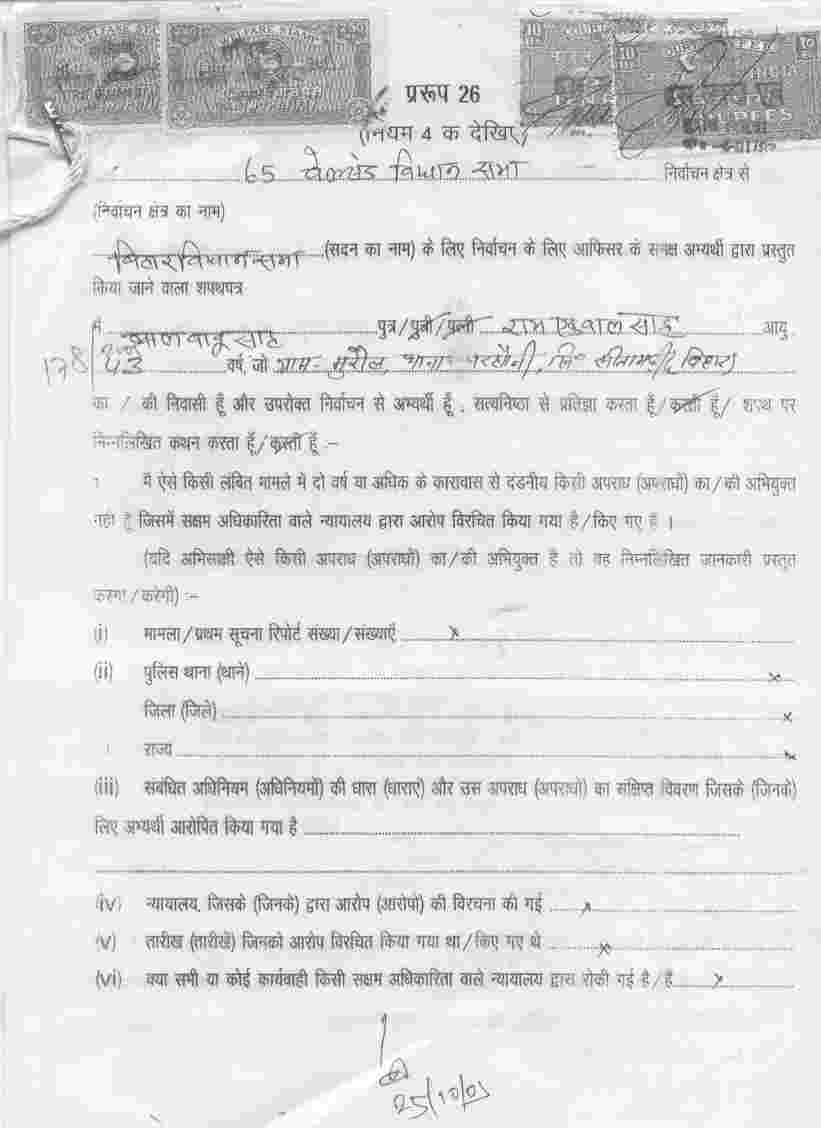 WELFARE STAMP
प्ररूप 26
(नियम 4 क देखिए)
65 बेलसंड विधान सभा निर्वाचन क्षेत्र से
(निर्वाचन क्षेत्र का नाम)
बिहार विधान सभा (सदन का नाम) के लिए निर्वाचन के लिए आफिसर के समक्ष अभ्यर्थी द्वारा प्रस्तुत
किया जाने वाला शपथपत्र
मैं बाबु साह पुत्र/पुत्री/पत्नी राम एकबाल साह आयु
178 43 वर्ष, जो ग्राम- मुरौल, थाना- परसौनी, जि० सीतामढ़ी (बिहार)
का / की निवासी हूँ और उपरोक्त निर्वाचन से अभ्यर्थी हूँ, सत्यनिष्ठा से प्रतिज्ञा करता हूँ/करती हूँ/ शपथ पर
निम्नलिखित कथन करता हूँ/करती हूँ :-
मैं ऐसे किसी लंबित मामले में दो वर्ष या अधिक के कारावास से दंडनीय किसी अपराध (अपराधों) का/की अभियुक्त
नहीं हूँ जिसमें सक्षम अधिकारिता वाले न्यायालय द्वारा आरोप विरचित किया गया है/किए गए हैं ।
(यदि अभिसाक्षी ऐसे किसी अपराध (अपराधों) का/की अभियुक्त है तो वह निम्नलिखित जानकारी प्रस्तुत
करेगा/करेगी) :-
(i) मामला/प्रथम सूचना रिपोर्ट संख्या/संख्याएँ x
(ii) पुलिस थाना (थाने) x
जिला (जिले) x
राज्य x
(iii) संबंधित अधिनियम (अधिनियमों) की धारा (धाराएं) और उस अपराध (अपराधों) का संक्षिप्त विवरण जिसके (जिनके)
लिए अभ्यर्थी आरोपित किया गया है
(iv) न्यायालय, जिसके (जिनके) द्वारा आरोप (आरोपों) की विरचना की गई x
(v) तारीख (तारीखें) जिनको आरोप विरचित किया गया था/किए गए थे x
(vi) क्या सभी या कोई कार्यवाही किसी सक्षम अधिकारिता वाले न्यायालय द्वारा रोकी गई है/हैं x
25/10/05